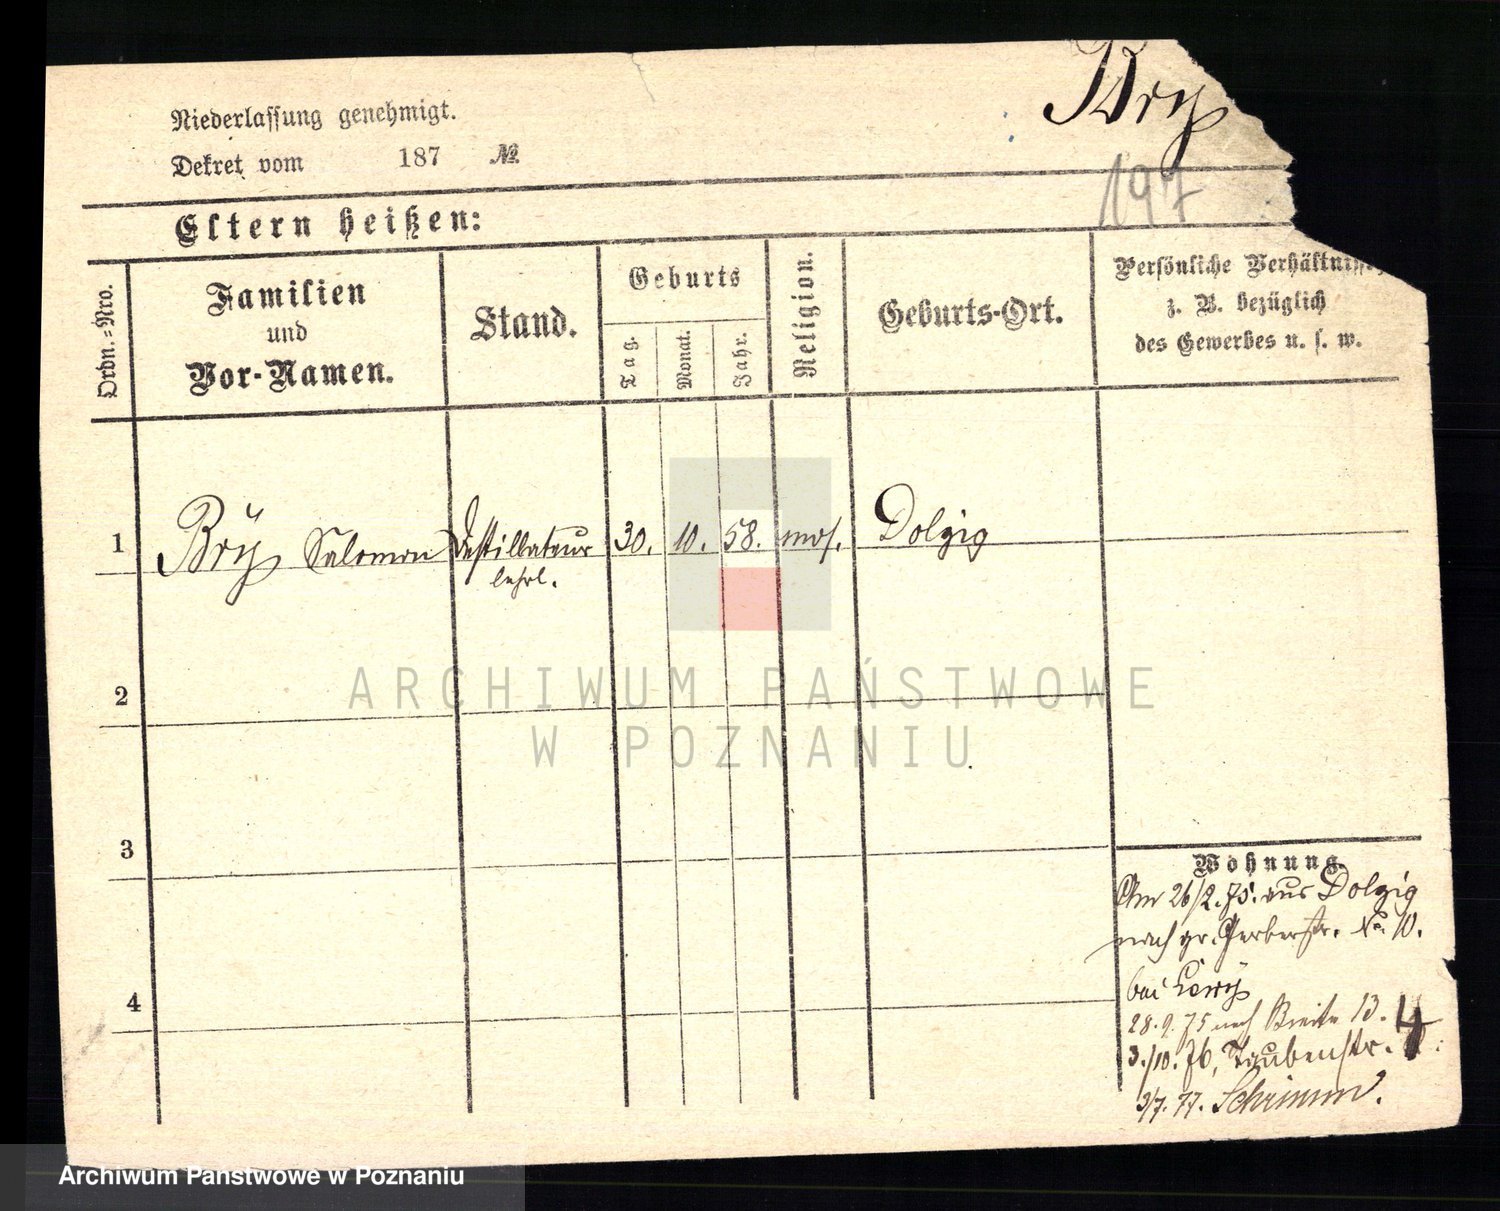 Bry
Niederlassung genehmigt.
Dekret vom 187 №
197
Eltern heißen:
Ordn.-Nro.
Familien
und
Vor-Namen.
Stand.
Geburts
Tag.
Monat.
Jahr.
Religion.
Geburts-Ort.
Persönliche Verhältnisse
z. B. bezüglich
des Gewerbes u. s. w.
1 Brÿ Salomon Destillateur 30. 10. 58. mos. Dolzig
lehrl.
2
3
4
Wohnung.
Am 26/2. 75. aus Dolzig
nach gr. Gerberstr. No. 10.
bei Lewÿ
28.9.75 nach Breite 13.
3./10. 76, Taubenstr. 4.
3/7. 77. Schrimm.
ARCHIWUM PAŃSTWOWE
W POZNANIU
Archiwum Państwowe w Poznaniu